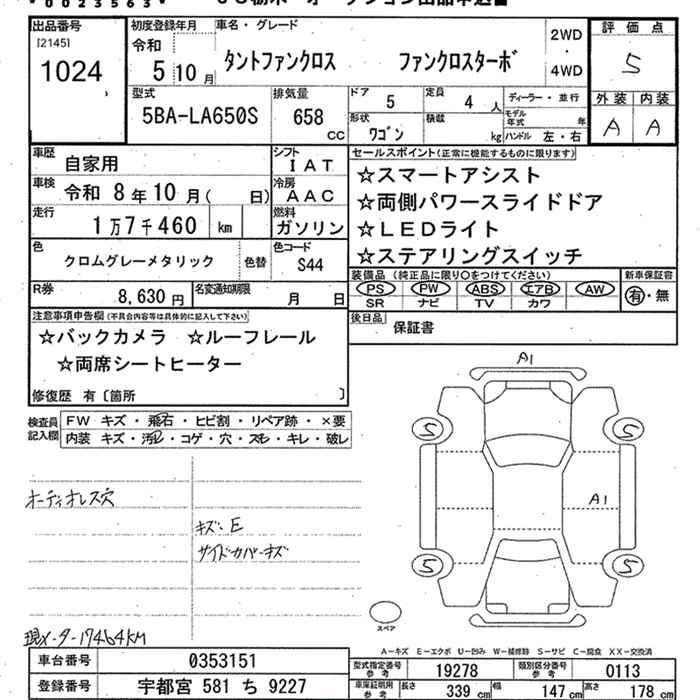 0023563
出品番号
[2145]
1024
初度登録年月
令和
5 10 月
車名・グレード
タントファンクロス ファンクロスターボ
2WD
・
4WD
評価点
5
外装 内装
A A
型式
5BA-LA650S
排気量
658
CC
ドア 5
定員 4 人
ディーラー・並行
形状 ワゴン
積載 kg
モデル年式 年
ハンドル 左・右
車歴 自家用
シフト IAT
車検 令和 8年10月( 日)
冷房 AAC
走行 1万7千460 km
燃料 ガソリン
色 クロムグレーメタリック
色替
色コード S44
R券 8,630円
名変通知期限 月 日
セールスポイント(正常に機能するものに限ります)
☆スマートアシスト
☆両側パワースライドドア
☆LEDライト
☆ステアリングスイッチ
装備品 (純正品に限り○をつけてください)
PS PW ABS エアB AW
SR ナビ TV カワ
新車保証書
有・無
後日品 保証書
注意事項申告欄(不具合内容等は具体的に記入して下さい)
☆バックカメラ ☆ルーフレール
☆両席シートヒーター
修復歴 有〔箇所 〕
検査員記入欄
FW キズ・飛石・ヒビ割・リペア跡・×要
内装 キズ・汚レ・コゲ・穴・スレ・キレ・破レ
オーディオレス穴
キズ・E
サイドカバーキズ
現メーター17464KM
A1
5 5
A1
5 5
スペア
A-キズ E-エクボ U-凹み W-補修跡 S-サビ C-腐食 XX-交換済
車台番号 0353151
登録番号 宇都宮 581 ち 9227
型式指定番号 参考 19278
類別区分番号 参考 0113
車庫証明用 参考 長さ 339 cm 幅 147 cm 高さ 178 cm